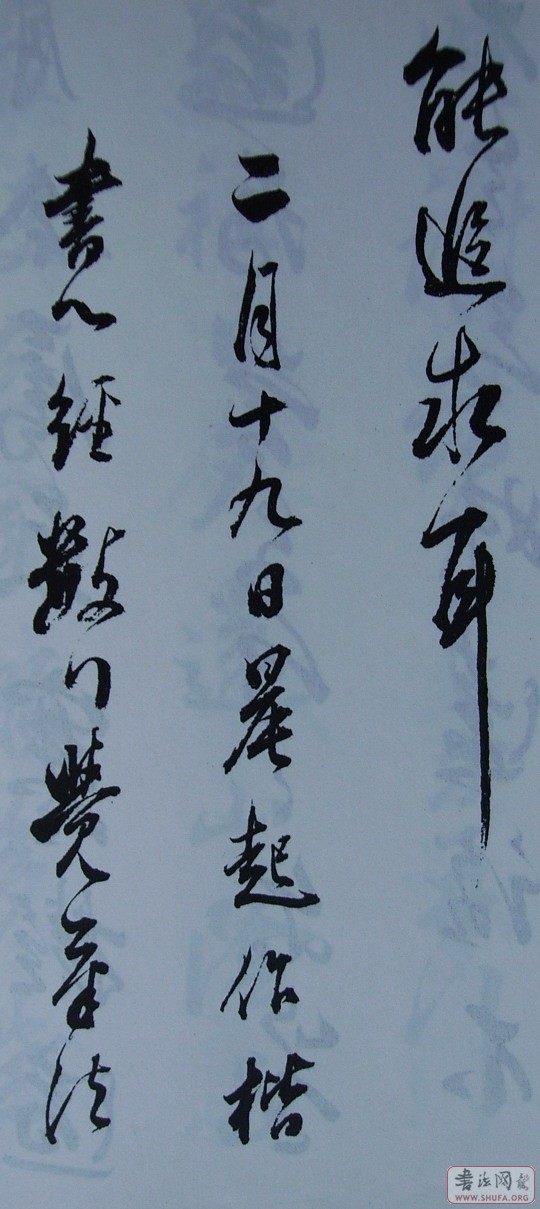 能追求耳
二月十九日晨起作楷
書心經數行覺筆法
書法网
WWW.SHUFA.ORG